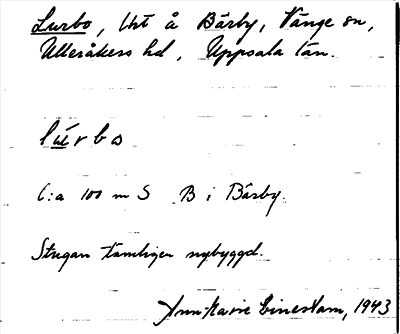 Lurbo, lht å Bärby, Vänge sn,
Ulleråkers hd, Uppsala län.
lu̇rbo
C:a 100 m S B i Bärby.
Stugan tämligen nybyggd.
Ann-Marie 1943